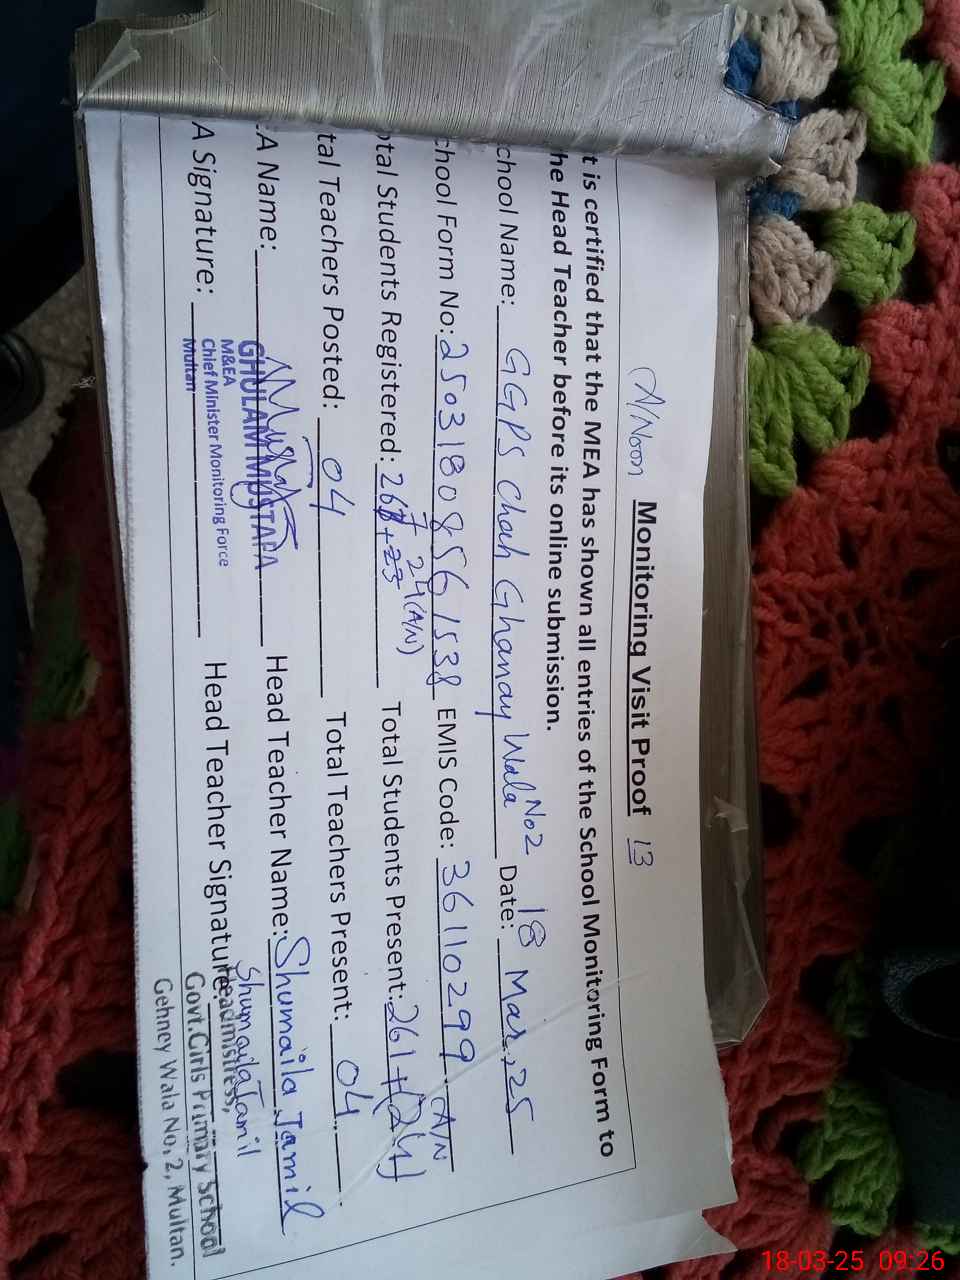 A/Noon Monitoring Visit Proof 13
t is certified that the MEA has shown all entries of the School Monitoring Form to
he Head Teacher before its online submission.
chool Name: GGPS Chah Ghanay Wala No 2 Date: 18 Mar, 25
chool Form No: 25031808561538 EMIS Code: 36110299 A/N
otal Students Registered: 267 + 23 24 (A/N) Total Students Present: 261 + (24)
tal Teachers Posted: 04 Total Teachers Present: 04
A Name: GHULAM MUSTAFA Head Teacher Name: Shumaila Jamil
M&EA
Chief Minister Monitoring Force
Multan
A Signature: Head Teacher Signature: Shumaila Jamil
Headmistress,
Govt. Girls Primary School
Gehney Wala No. 2, Multan.
18-03-25 09:26